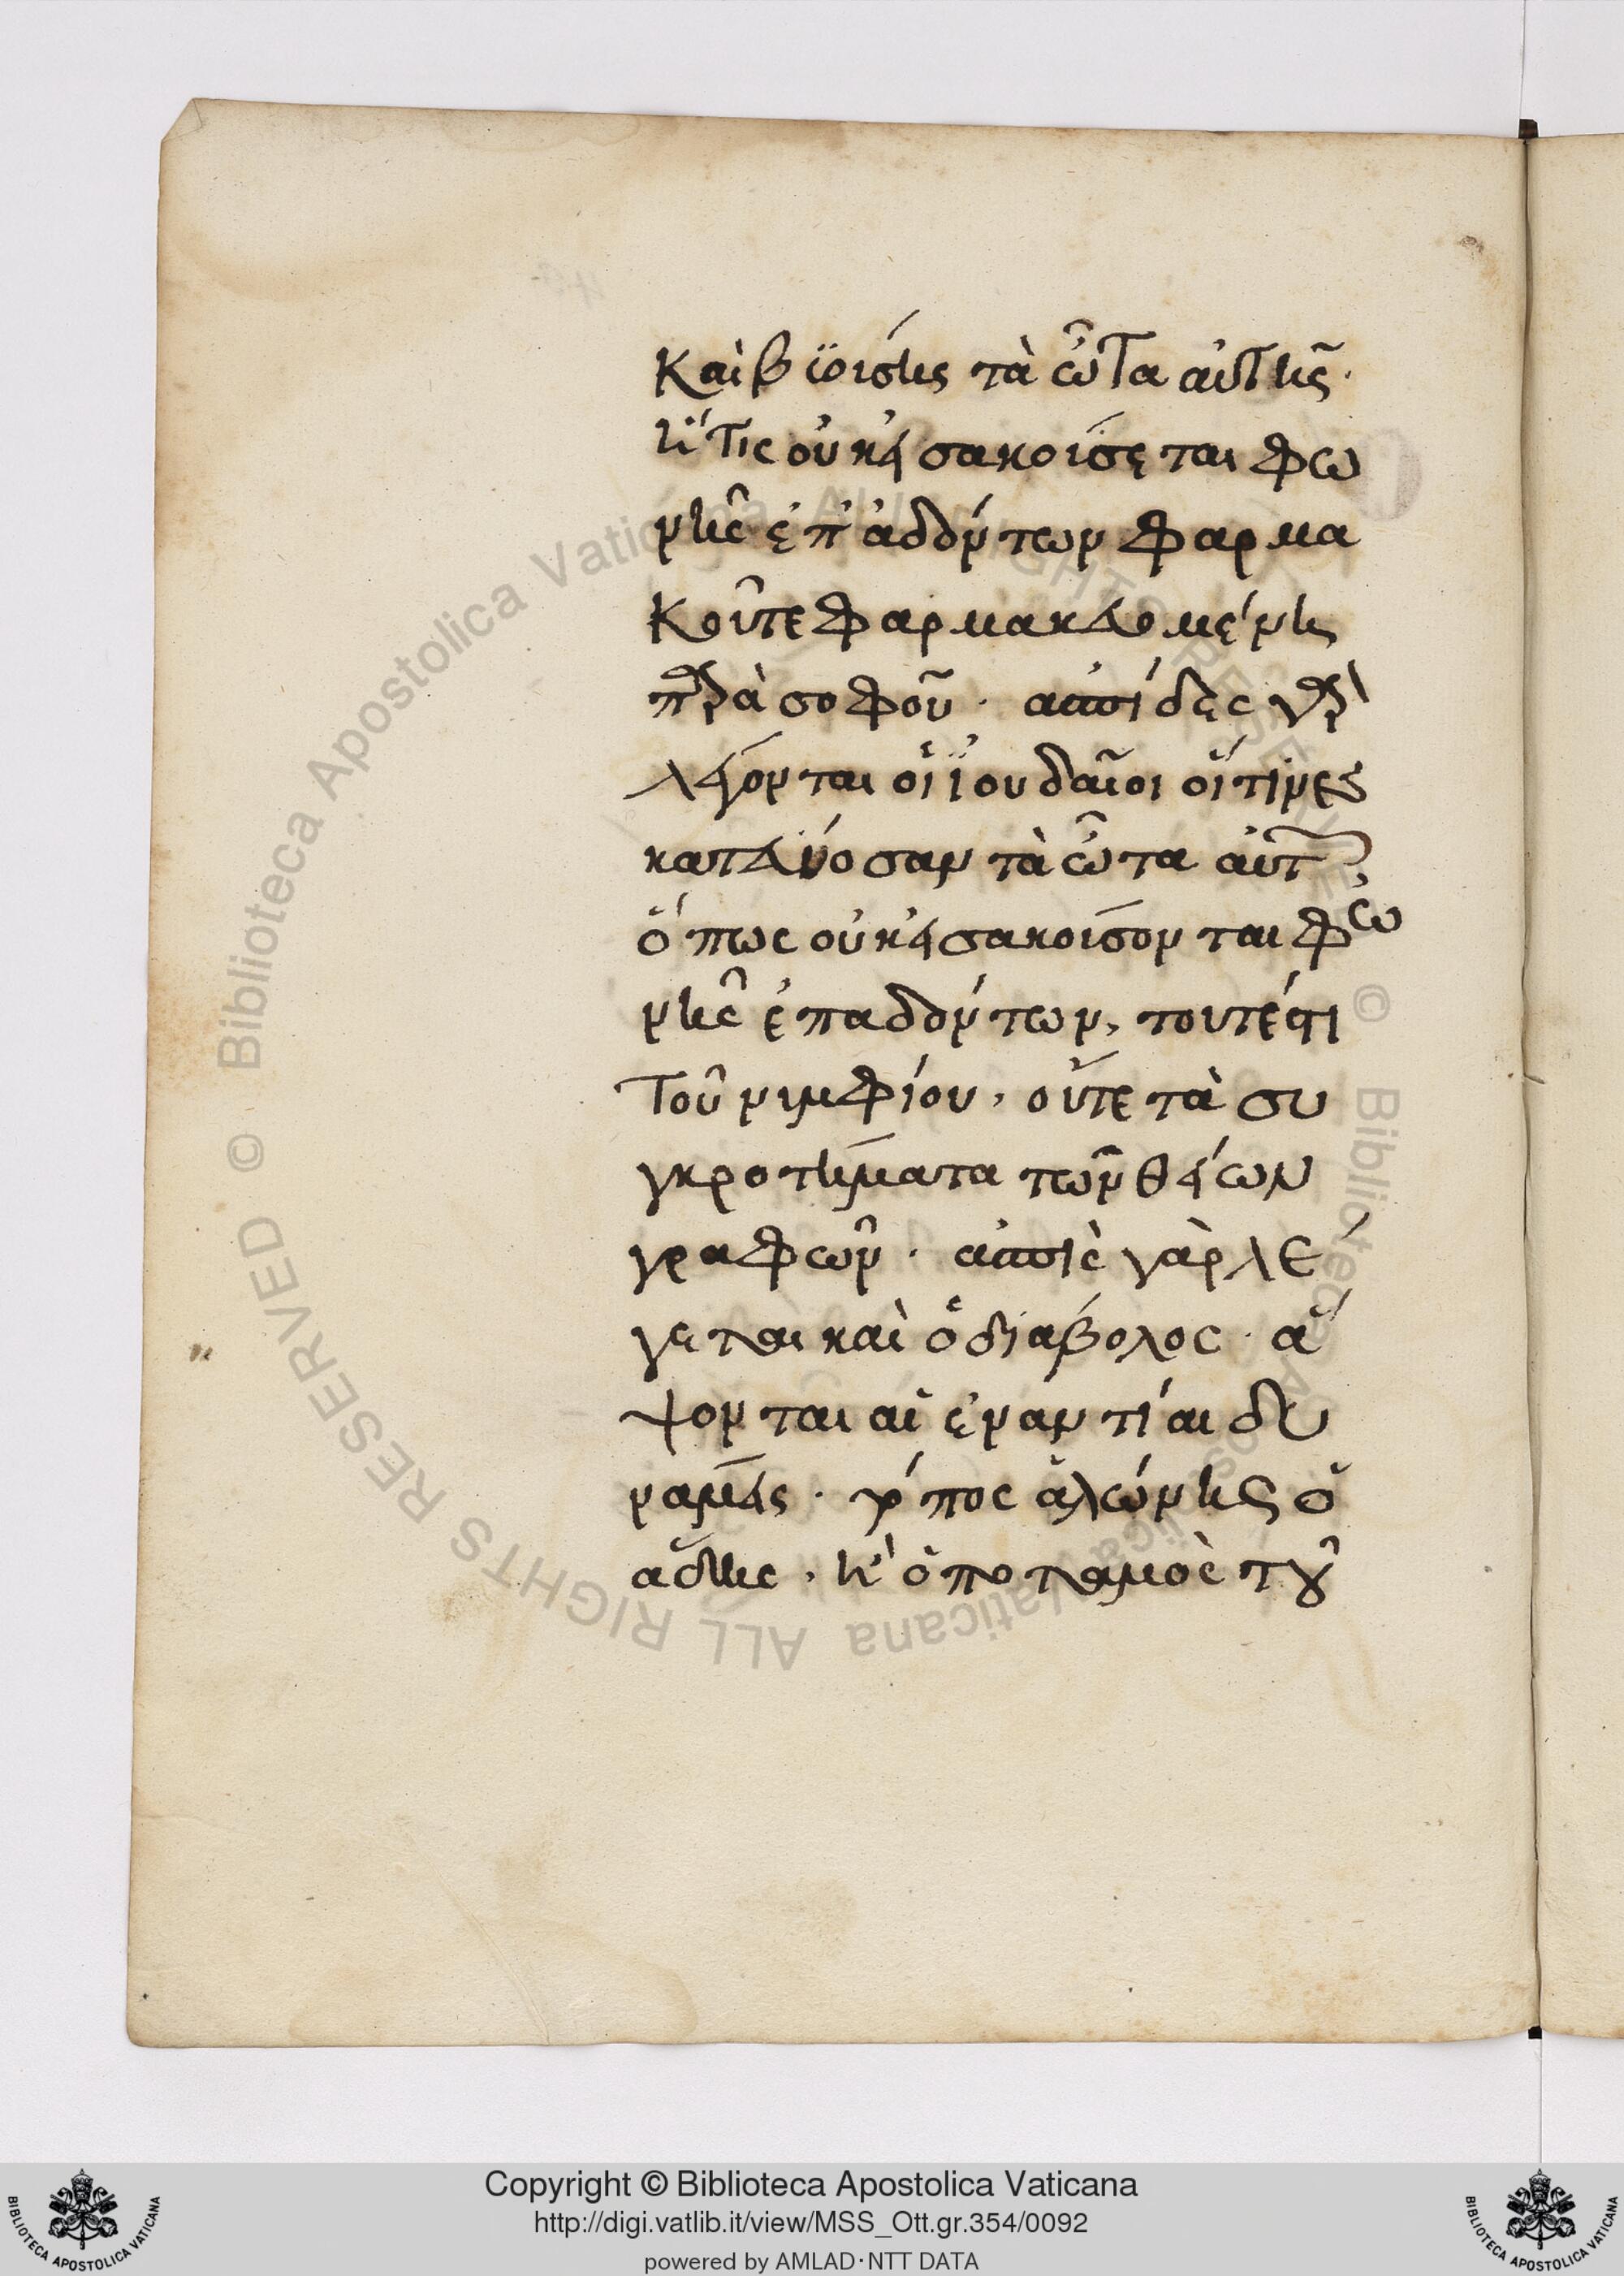 Καὶ βϋούσης τὰ ὦτα αὐτῆς·
ἥτις οὐκ εἰσακούσεται φω
νῆς ἐπαδόντων φαρμα
κοῦτε φαρμακευομένης
παρὰ σοφοῦ · ἀσπίδες γὰρ
λέγονται οἱ ἰουδαῖοι οἵτινες
τὰ ὦτα αὐτῶν,
ὅπως οὐκ εἰσακούσονται φω
νῆς ἐπαδόντων, τουτέστι
τοῦ νυμφίου, οὔτε τὰ συ
γκροτήματα τῶν θείων
γραφῶν · ἀσπὶς γὰρ λέ
γεται καὶ ὁ διάβολος · ἅ
ψονται αἱ ἐναντίαι δυ
νάμεις · γύπος ἁλώνης ὁ
ἅδης, καὶ ὁ ποταμὸς τοῦ
Copyright © Biblioteca Apostolica Vaticana
http://digi.vatlib.it/view/MSS_Ott.gr.354/0092
powered by AMLAD·NTT DATA
BIBLIOTECA APOSTOLICA VATICANA
BIBLIOTECA APOSTOLICA VATICANA
© Biblioteca Apostolica Vaticana ALL RIGHTS RESERVED © Biblioteca Apostolica Vaticana ALL RIGHTS RESERVED